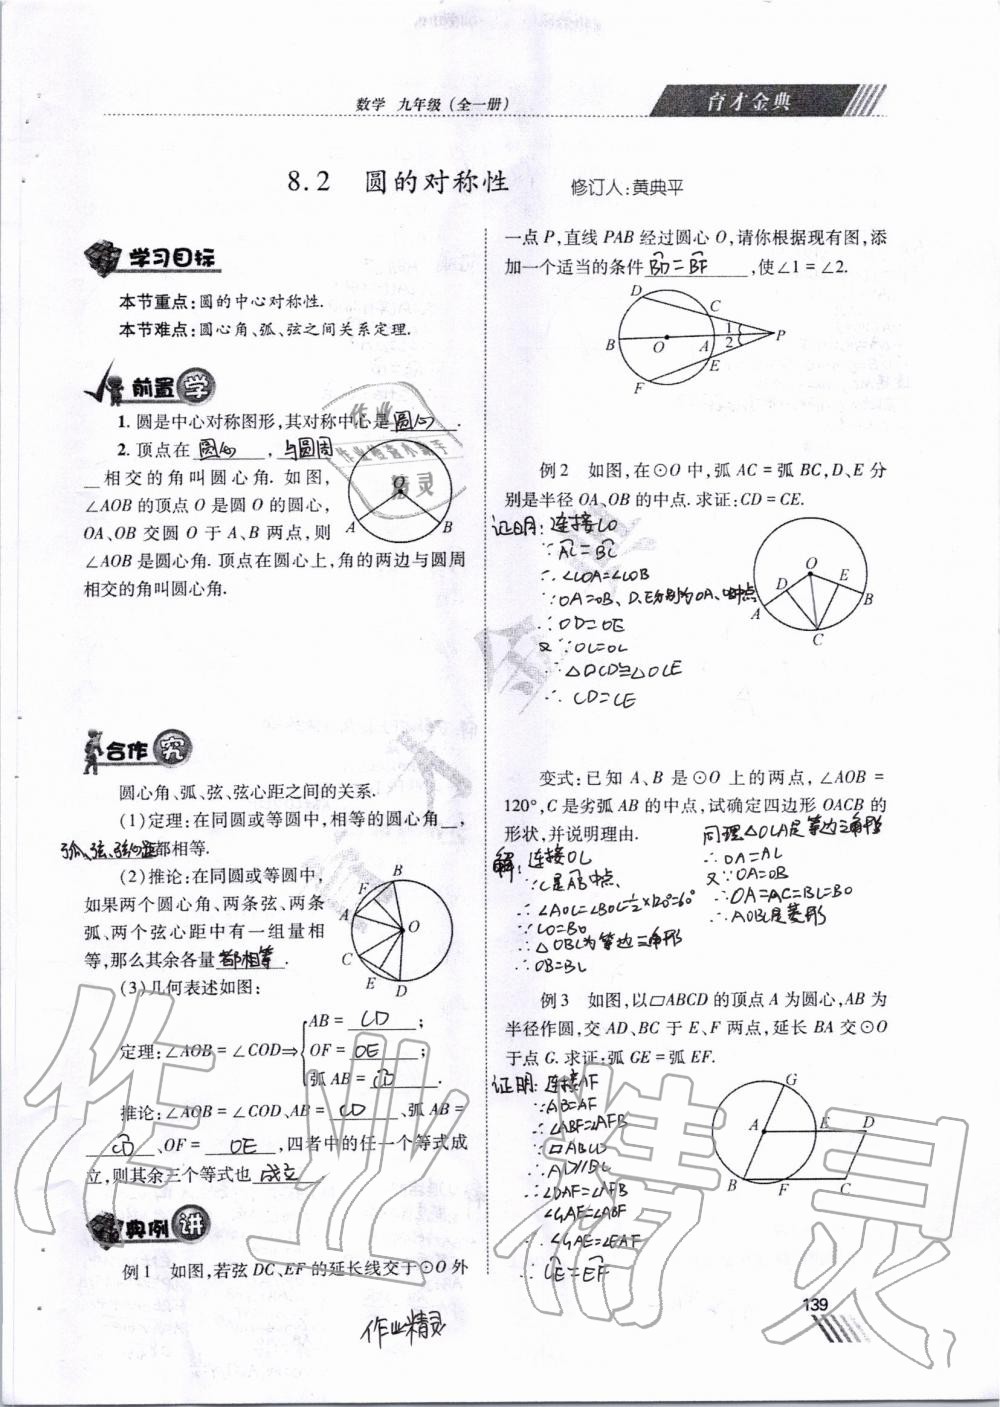 数学 九年级(全一册)
育才金典
8.2 圆的对称性
修订人:黄典平
学习目标
本节重点:圆的中心对称性.
本节难点:圆心角、弧、弦之间关系定理.
前置学
1. 圆是中心对称图形,其对称中心是 圆心 .
2. 顶点在 圆心 , 与圆周
相交的角叫圆心角. 如图,
∠AOB 的顶点 O 是圆 O 的圆心,
OA、OB 交圆 O 于 A、B 两点,则
∠AOB 是圆心角. 顶点在圆心上,角的两边与圆周
相交的角叫圆心角.
O
A
B
合作究
圆心角、弧、弦、弦心距之间的关系.
(1)定理:在同圆或等圆中,相等的圆心角 ,
弧、弦、弦心距都相等.
(2)推论:在同圆或等圆中,
如果两个圆心角、两条弦、两条
弧、两个弦心距中有一组量相
等,那么其余各量 都相等 .
B
F
A
O
C
E
D
(3)几何表述如图:
定理:∠AOB=∠COD⇒
AB= CD ;
OF= OE ;
弧 AB= C͡D .
推论:∠AOB=∠COD、AB= CD 、弧 AB=
C͡D 、OF= OE ,四者中的任一个等式成
立,则其余三个等式也 成立 .
典例讲
例 1 如图,若弦 DC、EF 的延长线交于⊙O 外
一点 P,直线 PAB 经过圆心 O,请你根据现有图,添
加一个适当的条件 B͡D=B͡F ,使∠1=∠2.
D
C
B
O
A
1
2
P
E
F
例 2 如图,在⊙O 中,弧 AC=弧 BC,D、E 分
别是半径 OA、OB 的中点. 求证:CD=CE.
证明:连接CO
∵A͡C=B͡C
∴∠COA=∠COB
∵OA=OB、D、E分别为OA、OB中点
∴OD=OE
又∵OC=OC
∴△OCD≌△OCE
∴CD=CE
O
D
E
A
B
C
变式:已知 A、B 是⊙O 上的两点,∠AOB=
120°,C 是劣弧 AB 的中点,试确定四边形 OACB 的
形状,并说明理由.
解:连接OC
∵C是A͡B中点,
∴∠AOC=∠BOC=½×120°=60°
∵CO=BO
∴△OBC为等边三角形
∴OB=BC
同理△OCA是等边三角形
∴OA=AC
又∵OA=OB
∴OA=AC=BC=BO
∴AOBC是菱形
例 3 如图,以▱ABCD 的顶点 A 为圆心,AB 为
半径作圆,交 AD、BC 于 E、F 两点,延长 BA 交⊙O
于点 G. 求证:弧 GE=弧 EF.
证明:连接AF
∵AB=AF
∴∠ABF=∠AFB
∵▱ABCD
∴AD∥BC
∴∠DAF=∠AFB
∠GAE=∠ABF
∴∠GAE=∠EAF
∴G͡E=E͡F
G
A
E
D
B
F
C
作业精灵
139
作业精灵